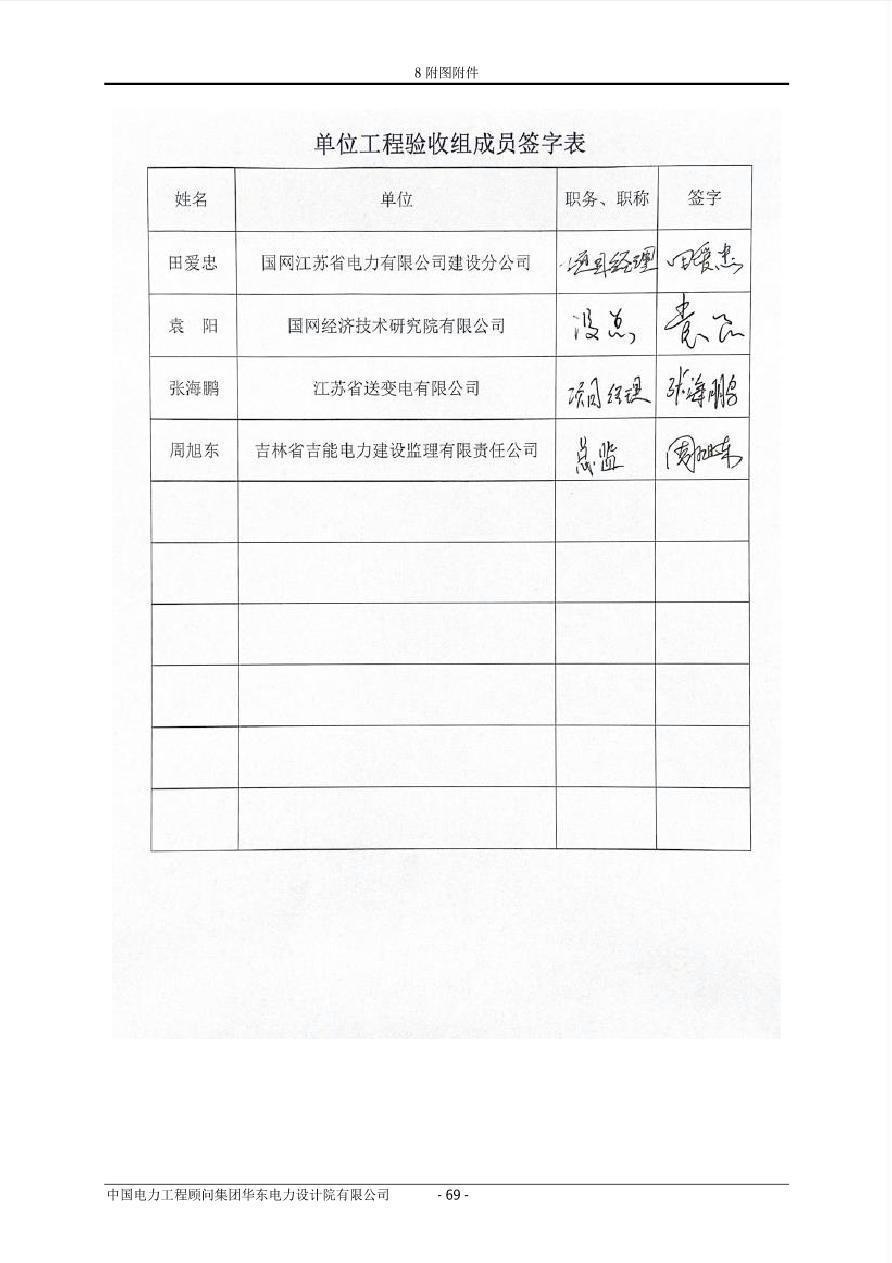 8 附图附件
单位工程验收组成员签字表
姓名 单位 职务、职称 签字
田爱忠 国网江苏省电力有限公司建设分公司 项目经理 田爱忠
袁 阳 国网经济技术研究院有限公司 设总 袁阳
张海鹏 江苏省送变电有限公司 项目经理 张海鹏
周旭东 吉林省吉能电力建设监理有限责任公司 总监 周旭东
中国电力工程顾问集团华东电力设计院有限公司 - 69 -